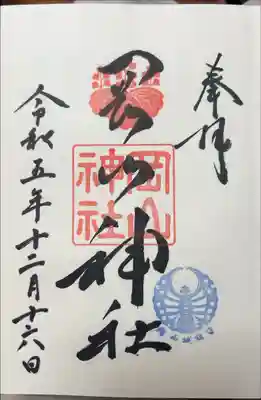 奉拝
岡山神社
岡山神社
令和五年十二月十六日